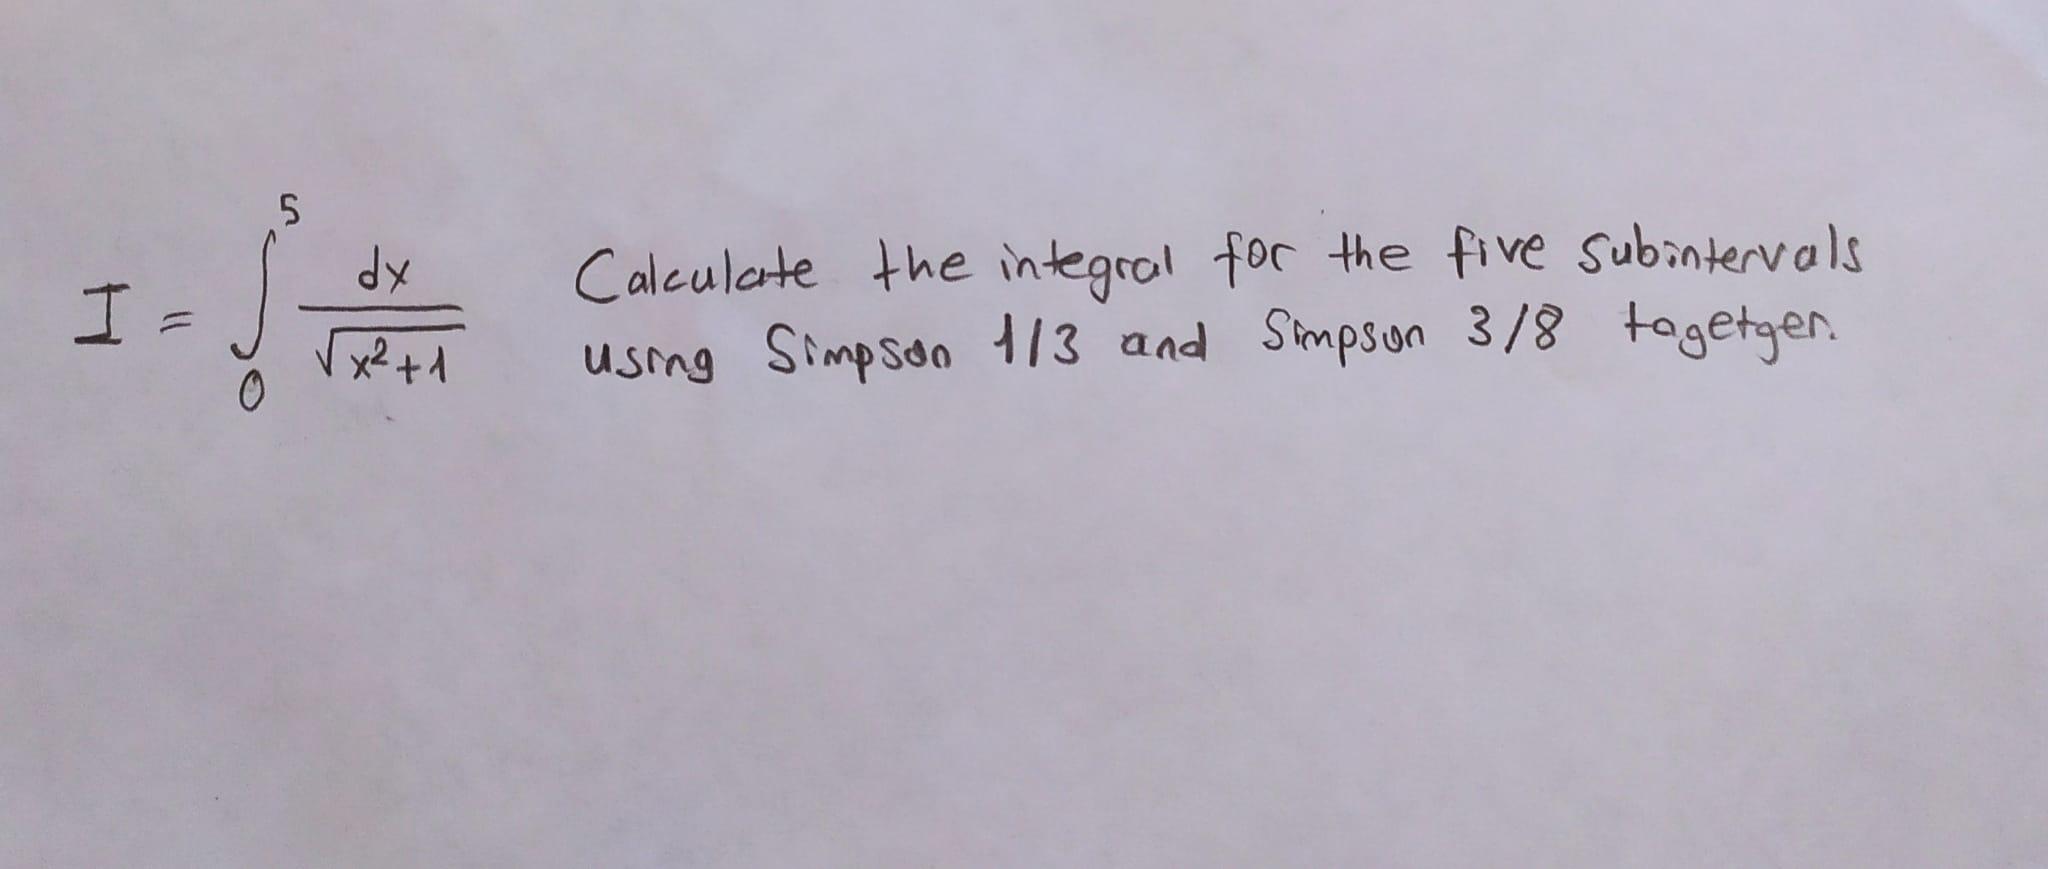 I = ∫₀⁵ dx / √(x²+1)
Calculate the integral for the five subintervals
using Simpson 1/3 and Simpson 3/8 tagetger.